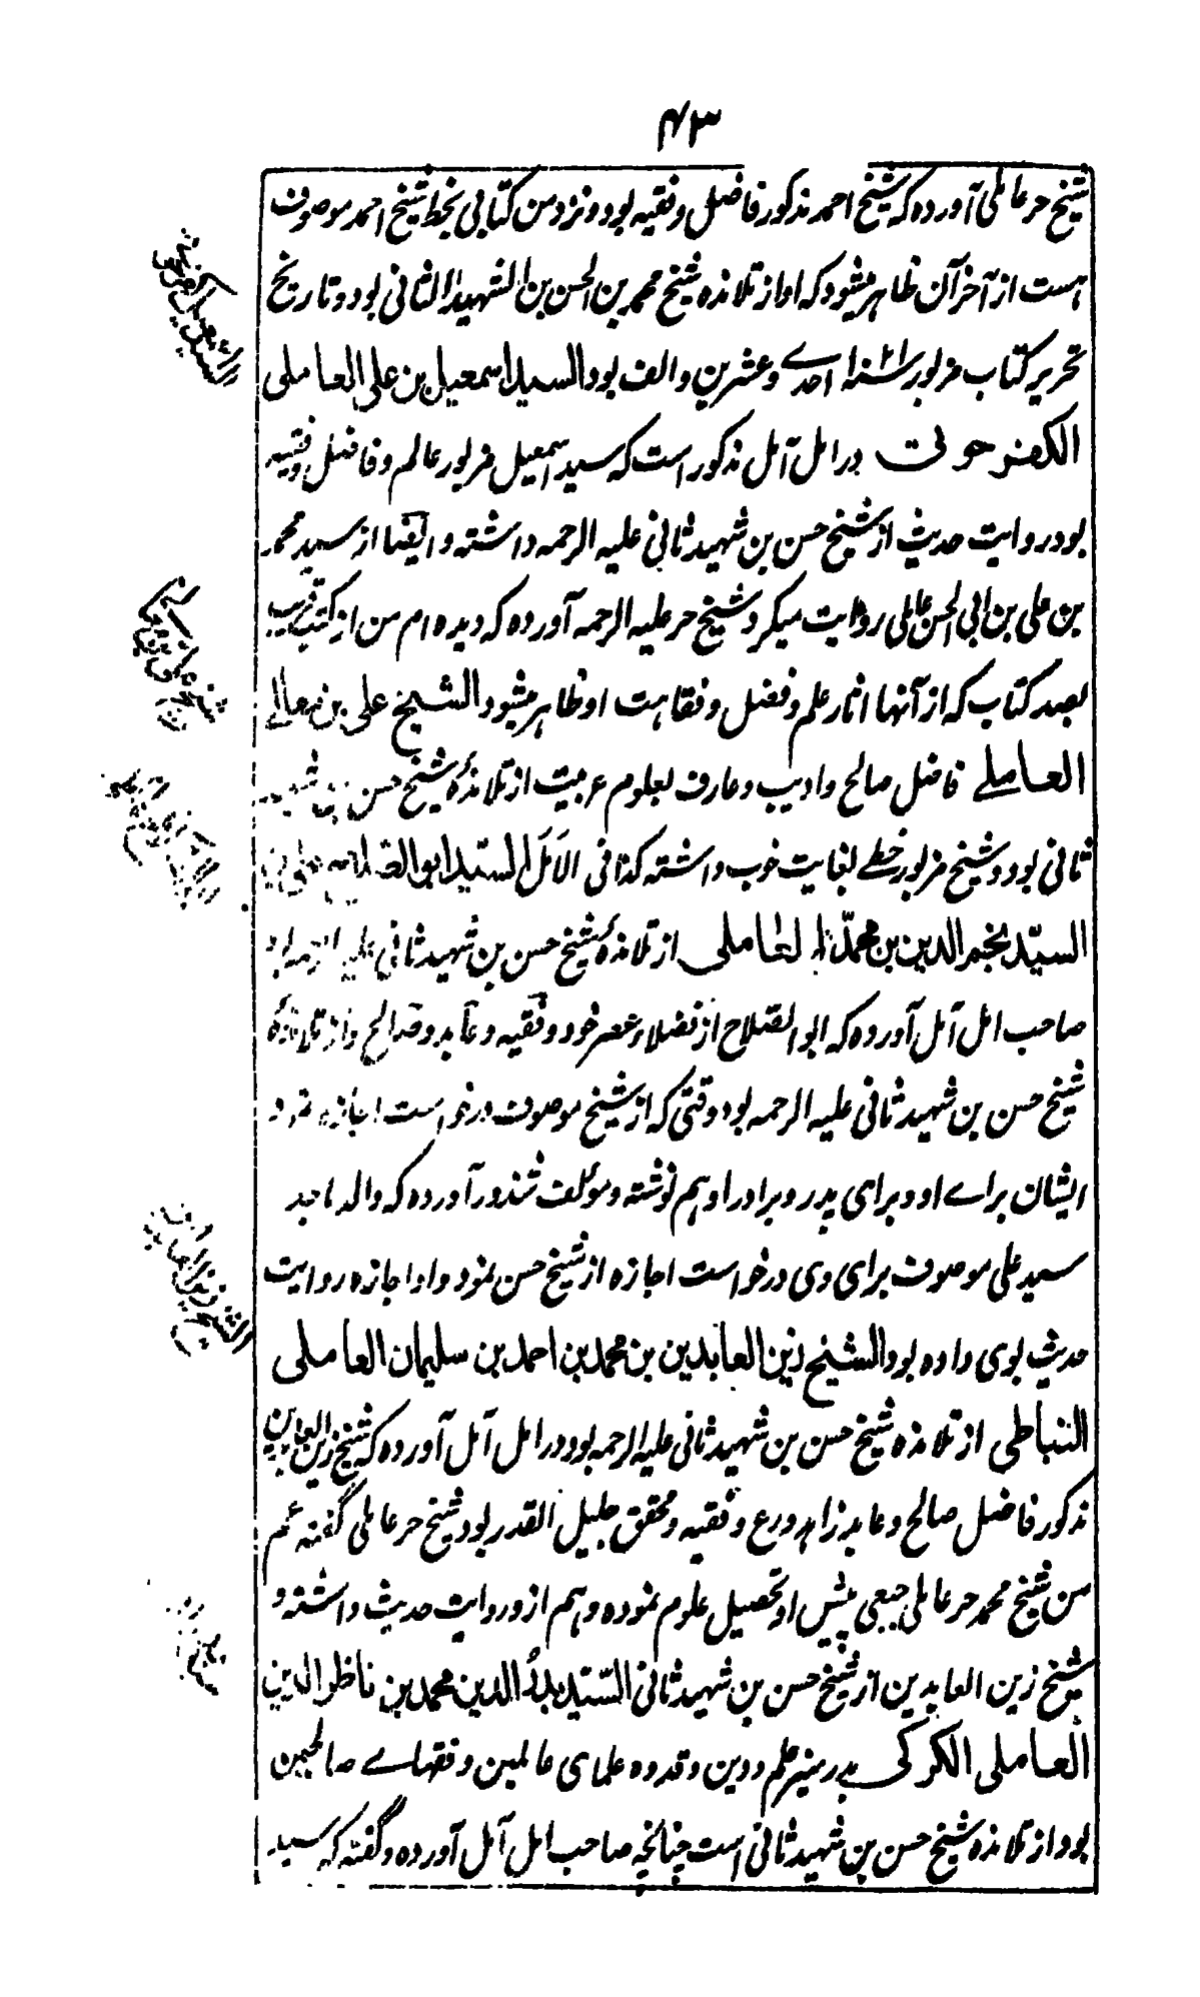 ۴۳
شیخ حر عاملی آورده که شیخ احمد مذکور فاضل و فقیه بود و نزد من کتابی بخط شیخ احمد موصوف
است از آخر آن ظاهر میشود که او از تلامذه شیخ محمد بن الحسن بن الشهید الثانی بود و تاریخ
تحریر کتاب مزبور سنه احدے و عشرین و الف بود السید اسمعیل بن علی العاملی
الکفرحونی در امل آمل مذکور است که سید اسمعیل مزبور عالم و فاضل و فقیه
بود روایت حدیث از شیخ حسن بن شهید ثانی علیه الرحمه داشته و ایضا از سید محمد
بن علی بن ابی الحسن عاملی روایت میکرد و شیخ حر علیه الرحمه آورده که دیده ام من از کتب قریب
بصد کتاب که از آنها اثار علم و فضل و فقاهت او ظاهر میشود الشیخ علی بن معالے
العاملے فاضل صالح و ادیب و عارف بعلوم عربیت از تلامذهٔ شیخ حسن بن شهید
ثانی بود و شیخ مزبور خطے بغایت خوب داشته کذا فی الاَمَل السیّد ابو الصلاح علی بن
السیّد نجم الدین بن محمّد العاملی از تلامذهٔ شیخ حسن بن شهید ثانی علیه الرحمه بود
صاحب امل آمل آورده که ابو الصّلاح از فضلاء عصر خود و فقیه و عابد و صالح و از تلامذهٔ
شیخ حسن بن شهید ثانی علیه الرحمه بود وقتی که از شیخ موصوف درخواست اجازه نمود
ایشان براے او و برای پدر و برادر او هم نوشته و مؤلف شذور آورده که والد ماجد
سید علی موصوف برای وی درخواست اجازه از شیخ حسن نمود و او اجازه روایت
حدیث بوی داده بود الشیخ زین العابدین بن محمد بن احمد بن سلیمان العاملی
النباطی از تلامذه شیخ حسن بن شهید ثانی علیه الرحمه بود در امل آمل آورده که شیخ زین العابدین
مذکور فاضل صالح و عابد زاهد ورع و فقیه و محقق جلیل القدر بود شیخ حر عاملی گفته عم
من شیخ محمد حر عاملی جبعی پیش او تحصیل علوم نموده و هم از و روایت حدیث داشته و
شیخ زین العابدین از شیخ حسن بن شهید ثانی السّید بدرُ الدین محمد بن ناظر الدین
العاملی الکرکی بدر منیر علم و دین و قدوه علمای عالمین و فقهاے صالحین
بود از تلامذه شیخ حسن بن شهید ثانی است چنانچه صاحب امل آمل آورده و گفته که سید
السید اسمعیل الکفرحونی
شیخ علی بن معالی
الشیخ زین العابدین